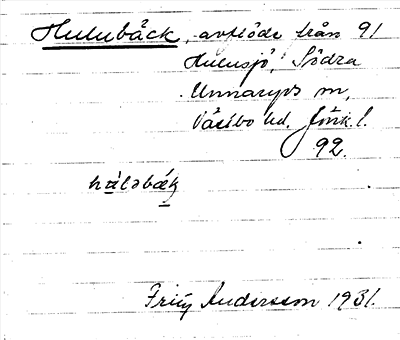 Hulubäck, avflöde från 91
Hulusjö, Södra
Unnaryds sn,
Västbo hd. Jönk. l.
92.
hàləbæk
Fritz Andersson 1931.